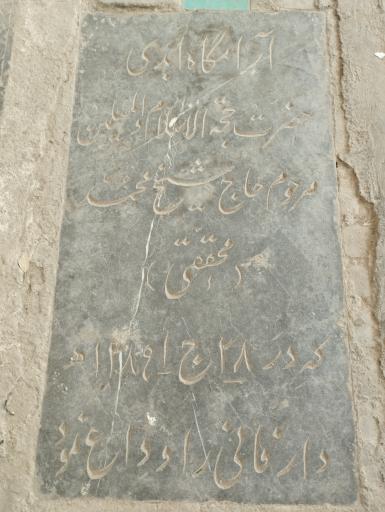 آرامگاه ابدی
حضرت حجة الاسلام والمسلمین
مرحوم حاج شیخ محمد
(محققی)
که در ۲۸ ج ۱ ۱۳۸۹ ه
دار فانی را وداع نمود